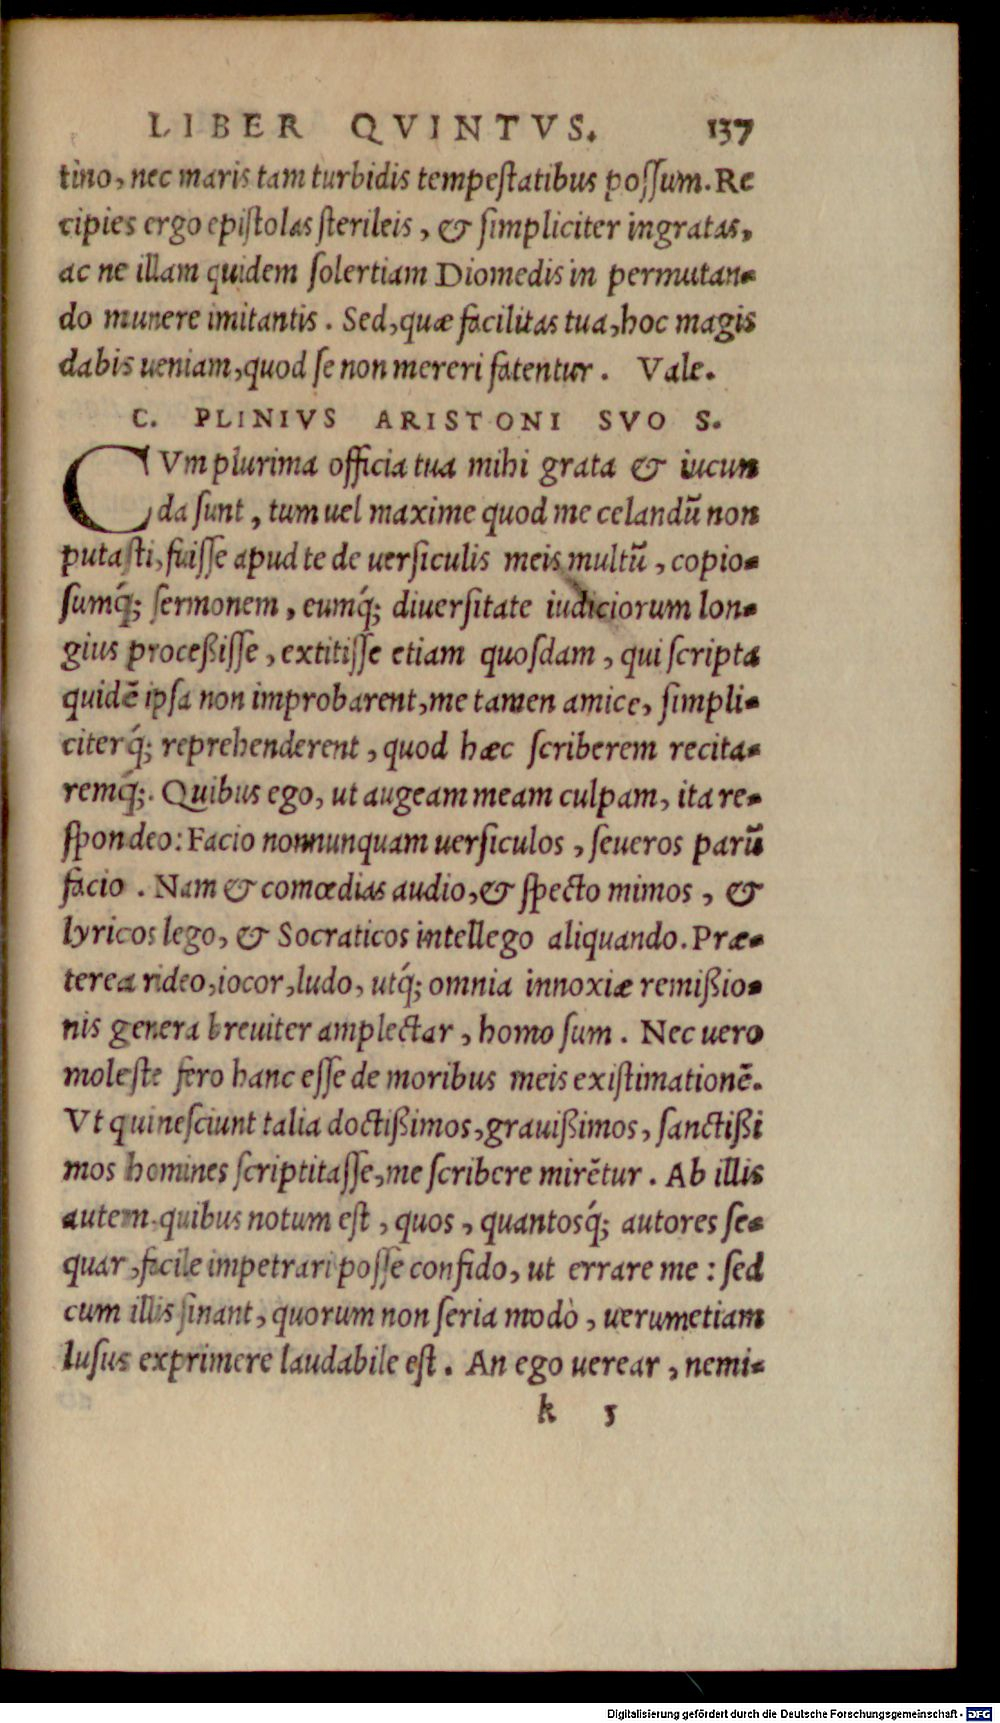 LIBER QVINTVS. 137
tino, nec maris tam turbidis tempestatibus possum. Re
cipies ergo epistolas sterileis, & simpliciter ingratas,
ac ne illam quidem solertiam Diomedis in permutan-
do munere imitantis. Sed, quæ facilitas tua, hoc magis
dabis ueniam, quod se non mereri fatentur. Vale.
C. PLINIVS ARISTONI SVO S.
CVm plurima officia tua mihi grata & iucun
da sunt, tum uel maxime quod me celandũ non
putasti, fuisse apud te de uersiculis meis multũ, copio-
sumq́; sermonem, eumq́; diuersitate iudiciorum lon-
gius proceßisse, extitisse etiam quosdam, qui scripta
quidẽ ipsa non improbarent, me tamen amice, simpli-
citerq́; reprehenderent, quod hæc scriberem recita-
remq́;. Quibus ego, ut augeam meam culpam, ita re-
spondeo: Facio nonnunquam uersiculos, seueros parũ
facio. Nam & comœdias audio, & specto mimos, &
lyricos lego, & Socraticos intellego aliquando. Præ-
terea rideo, iocor, ludo, utq́; omnia innoxiæ remißio-
nis genera breuiter amplectar, homo sum. Nec uero
moleste fero hanc esse de moribus meis existimationẽ.
Vt qui nesciunt talia doctißimos, grauißimos, sanctißi
mos homines scriptitasse, me scribere mirẽtur. Ab illis
autem, quibus notum est, quos, quantosq́; autores se-
quar, facile impetrari posse confido, ut errare me: sed
cum illis sinant, quorum non seria modò, uerumetiam
lusus exprimere laudabile est. An ego uerear, nemi-
k 5
Digitalisierung gefördert durch die Deutsche Forschungsgemeinschaft - DFG